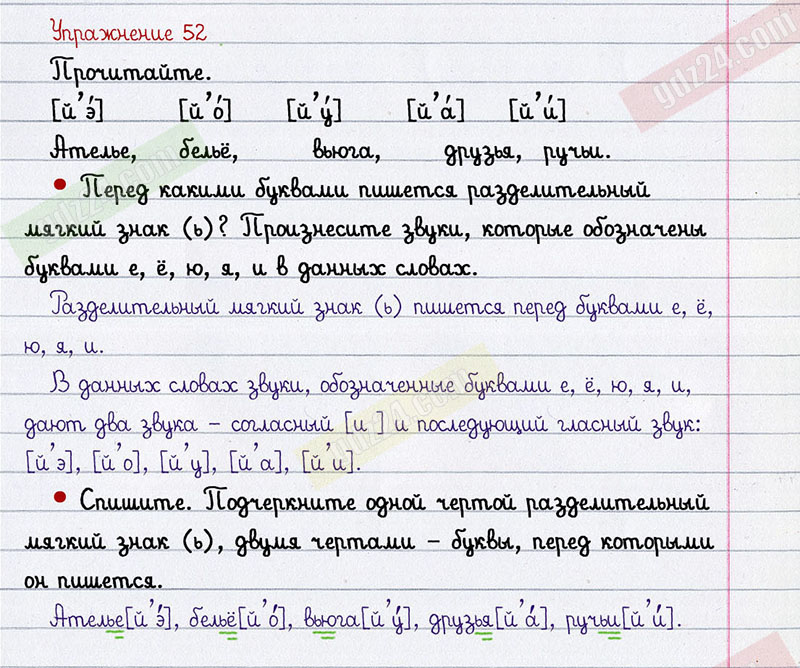 Упражнение 52
Прочитайте.
[й’э́] [й’о́] [й’у́] [й’а́] [й’и́]
Ателье, бельё, вьюга, друзья, ручьи.
• Перед какими буквами пишется разделительный
мягкий знак (ь)? Произнесите звуки, которые обозначены
буквами е, ё, ю, я, и в данных словах.
Разделительный мягкий знак (ь) пишется перед буквами е, ё,
ю, я, и.
В данных словах звуки, обозначенные буквами е, ё, ю, я, и,
дают два звука – согласный [и ] и последующий гласный звук:
[й’э], [й’о], [й’у], [й’а], [й’и].
• Спишите. Подчеркните одной чертой разделительный
мягкий знак (ь), двумя чертами – буквы, перед которыми
он пишется.
Ателье[й’э́], бельё[й’о́], вьюга[й’у́], друзья[й’а́], ручьи[й’и́].
gdz24.com
gdz24.com
gdz24.com